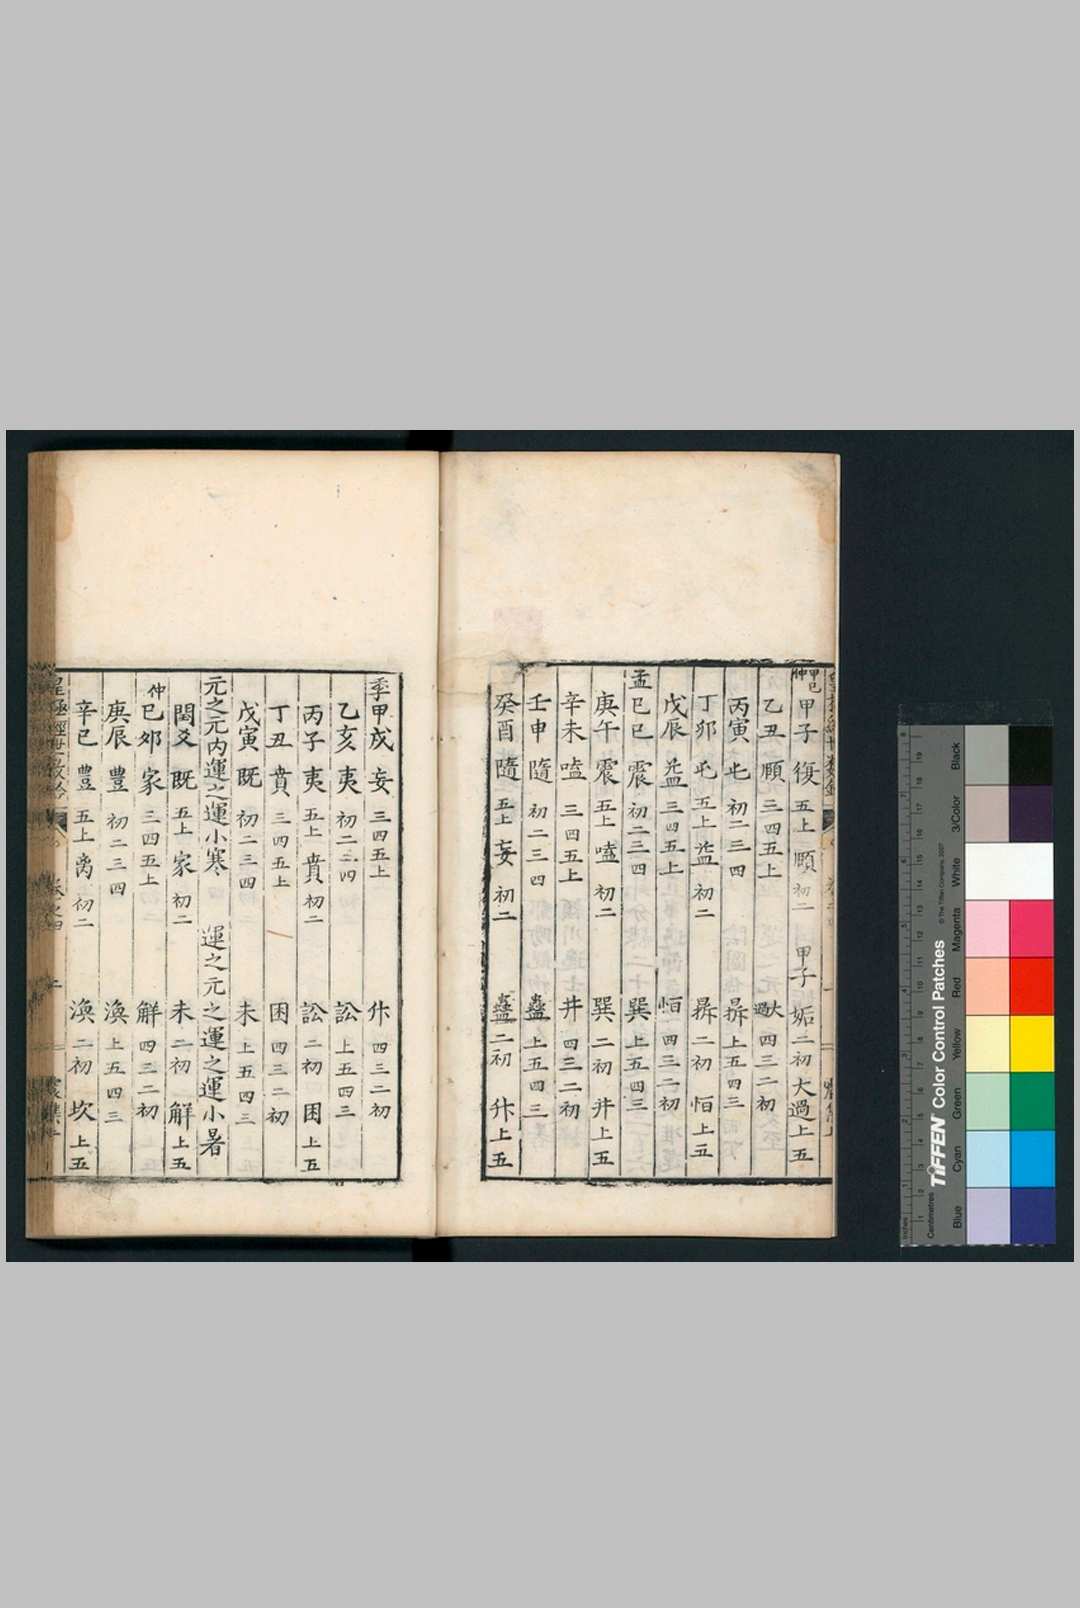 甲己仲 甲子 復 五上 頤 初二 甲子 姤 二初 大過 上五
乙丑 頤 三四五上 大過 四三二初
丙寅 屯 初二三四 鼎 上五四三
丁卯 屯 五上 益 初二 鼎 二初 恒 上五
戊辰 益 三四五上 恒 四三二初
孟 己巳 震 初二三四 巽 上五四三
庚午 震 五上 嗑 初二 巽 二初 井 上五
辛未 嗑 三四五上 井 四三二初
壬申 隨 初二三四 蠱 上五四三
癸酉 隨 五上 妄 初二 蠱 二初 升 上五
季 甲戌 妄 三四五上 升 四三二初
乙亥 夷 初二三四 訟 上五四三
丙子 夷 五上 賁 初二 訟 二初 困 上五
丁丑 賁 三四五上 困 四三二初
戊寅 既 初二三四 未 上五四三
元之元內運之運小寒 運之元之運之運小暑
閏爻 既 五上 家 初二 未 二初 解 上五
仲 己卯 家 三四五上 解 四三二初
庚辰 豐 初二三四 渙 上五四三
辛巳 豐 五上 离 初二 渙 二初 坎 上五
TIFFEN Color Control Patches
© The Tiffen Company, 2007
Inches
Centimetres
Blue
Cyan
Green
Yellow
Red
Magenta
White
3/Color
Black